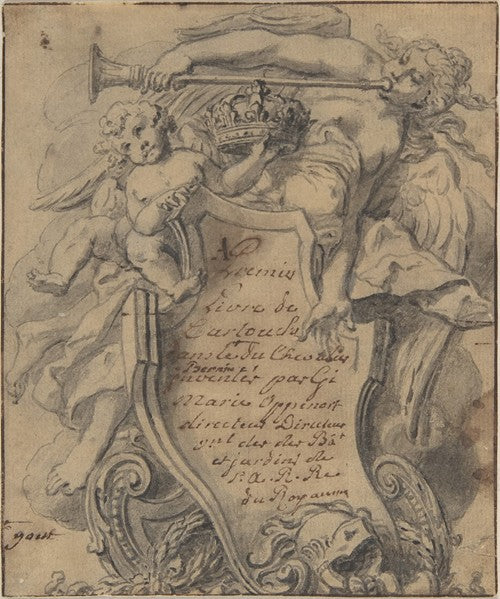 A
Premier
Livre de
Cartouche
du Chevalier
Bernin
inventés par G
Marie Oppenort
directeur Directeur
gnl des des Bât
et jardins de
S. A. R. Re
du Royaume
gout